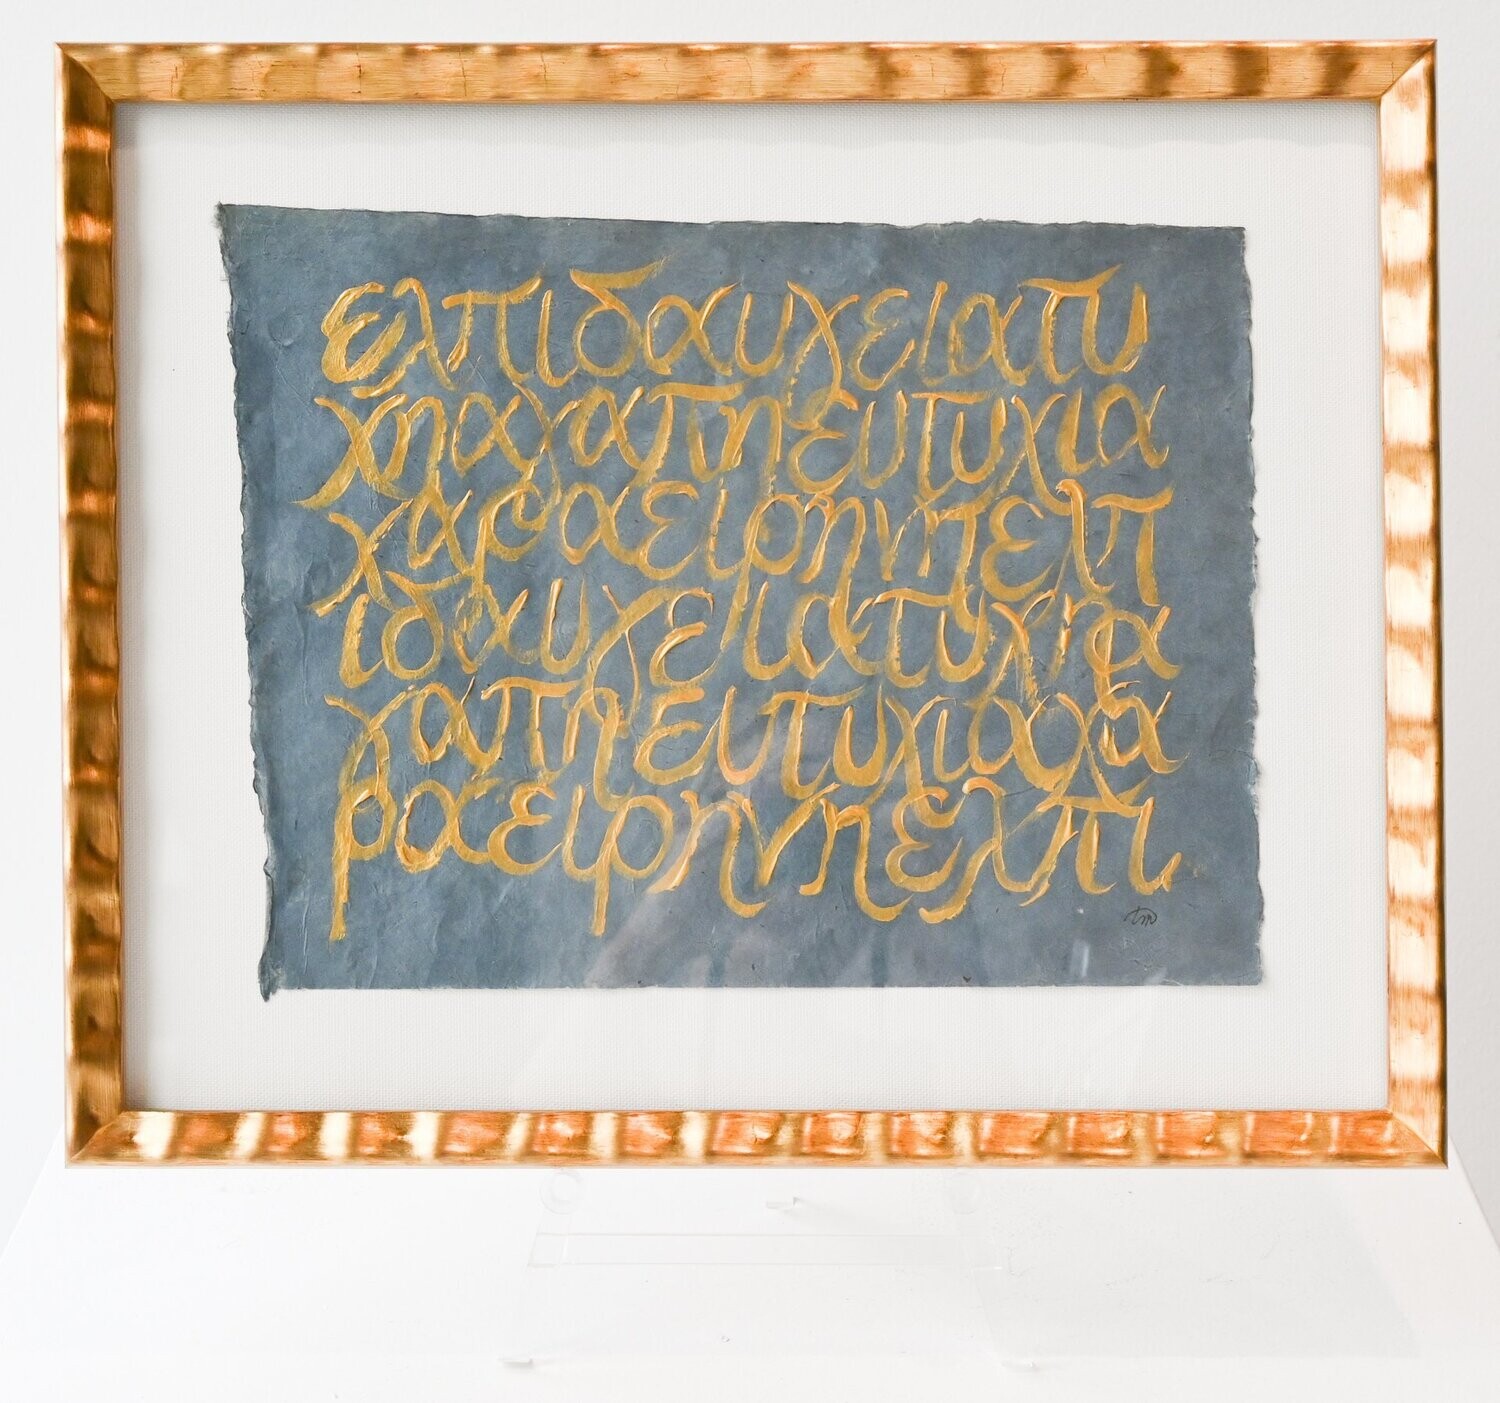 ελπιδαυγειατυ
χηαγαπηευτυχια
χαραειρηνηελπ
ιδαυγειατυχηα
γαπηευτυχιαχα
ραειρηνηελπι